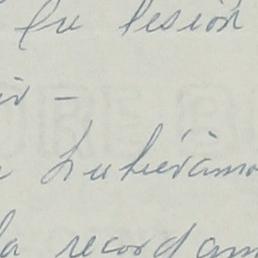 fu lesión
ir -
hubiéramo
la recordam